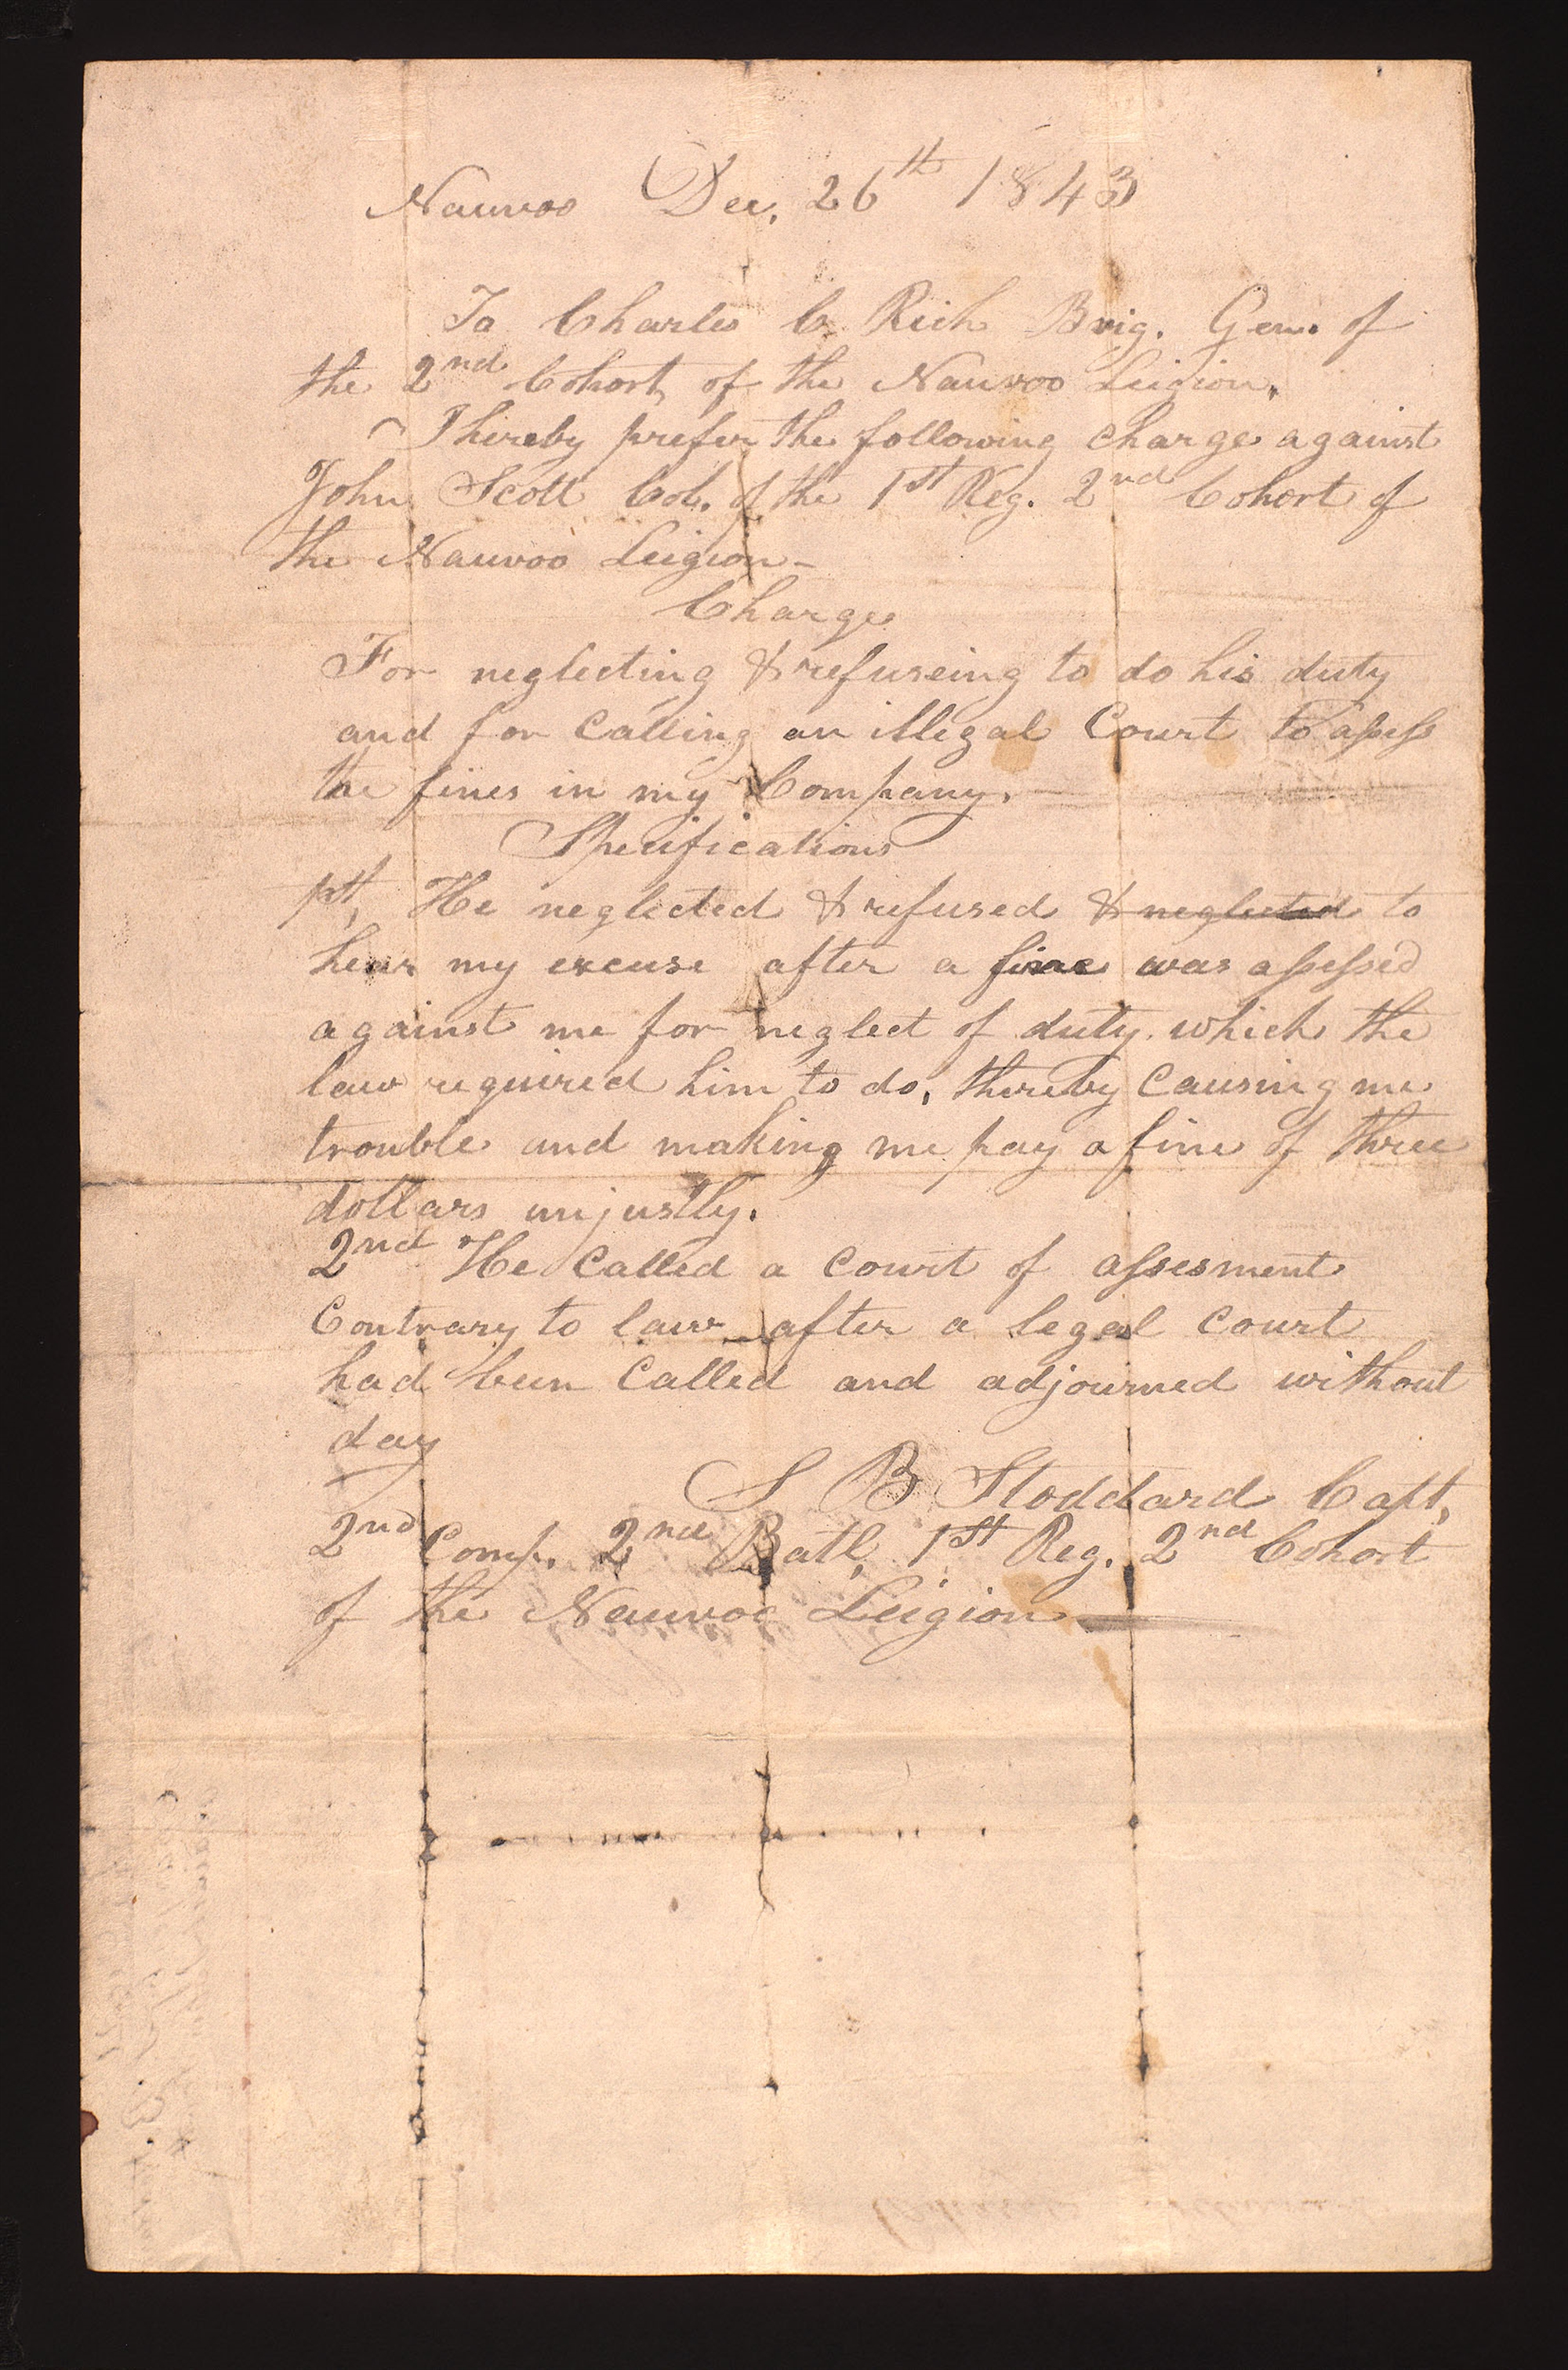 Nauvoo Dec. 26th 1843
To Charles C. Rich Brig. Gen. of
the 2nd Cohort of the Nauvoo Leigion.
I hereby prefer the following charge against
John Scott Col. of the 1st Reg. 2nd Cohort of
the Nauvoo Leigion-
Charge
For neglecting & refuseing to do his duty
and for Calling an illegal Court to assess
the fines in my Company.
Specifications
1st, He neglected & refused & neglected to
hear my excuse after a fine was assessed
against me for neglect of duty which the
law required him to do, thereby Causing me
trouble and making me pay a fine of three
dollars unjustly.
2nd He Called a Court of assesment
Contrary to law after a legal Court
had been Called and adjourned without
day
S B Stoddard Capt,
2nd Comp. 2nd Batl, 1st Reg. 2nd Cohort
of the Nauvoo Leigion